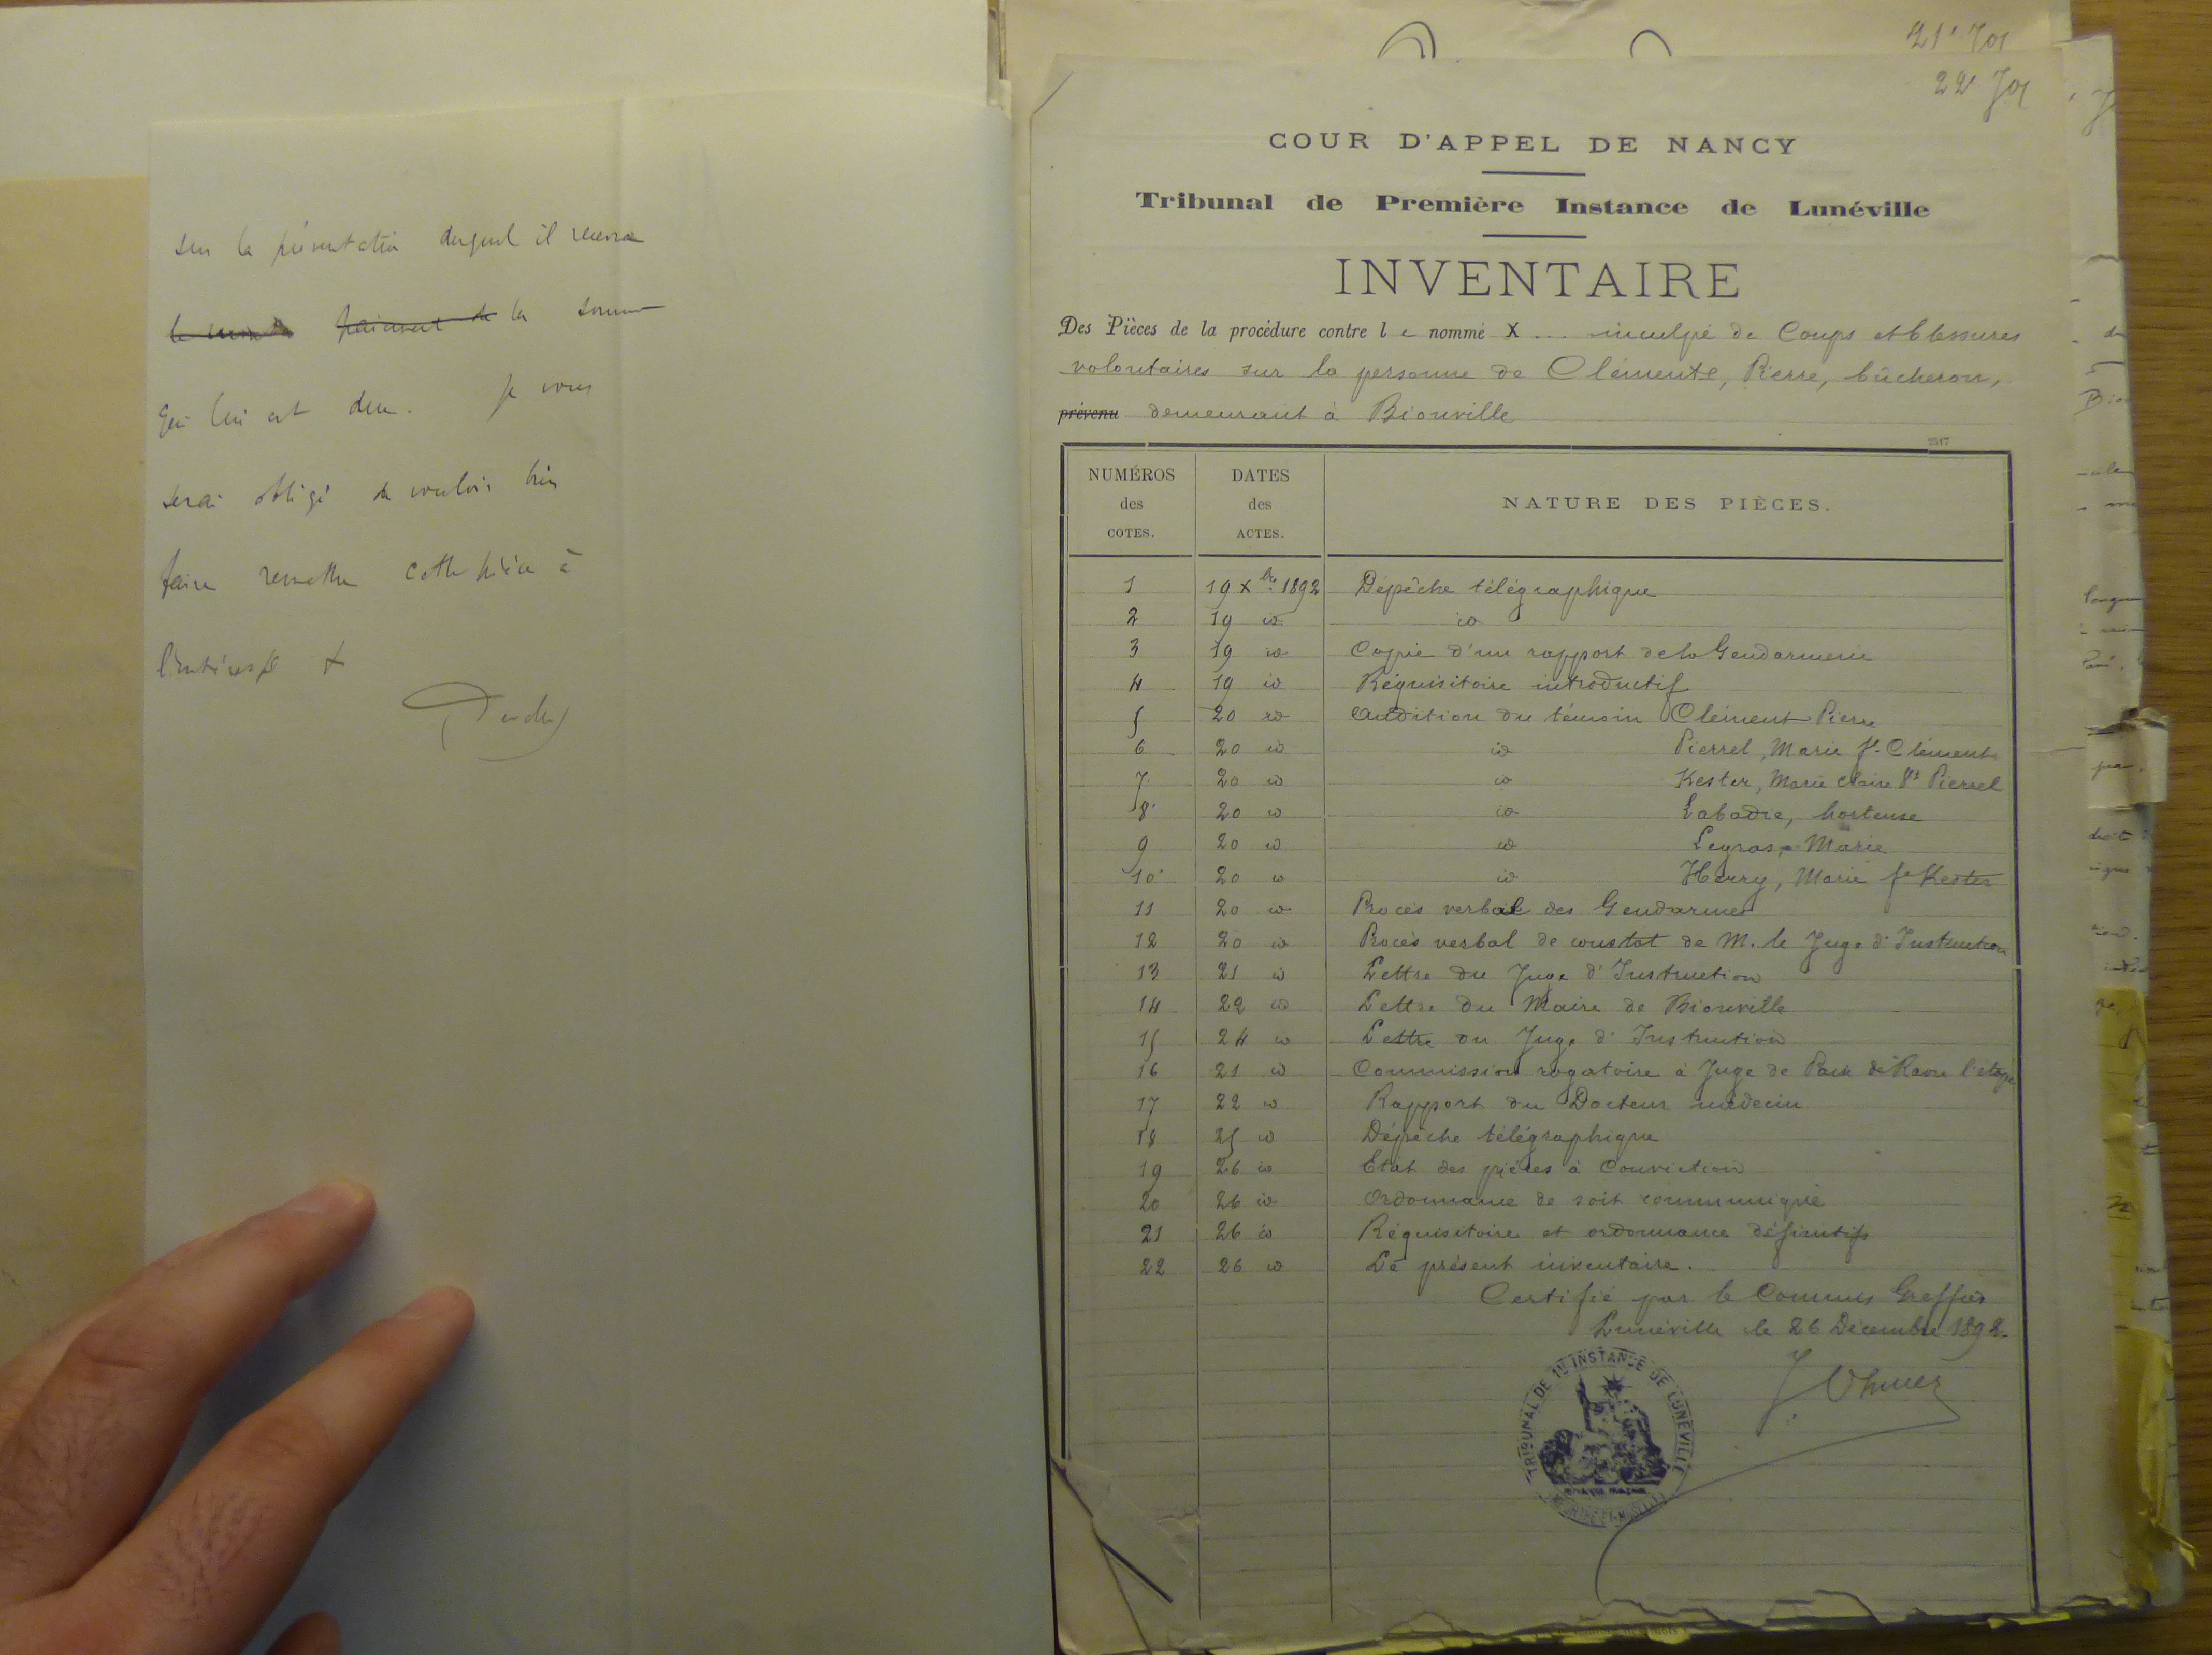 sur la présentation duquel il recevra
paiement de la somme
qui lui est due. Je vous
serai obligé de vouloir bien
faire remettre cette pièce à
l'intéressé
21e Jos
22e Jos
COUR D'APPEL DE NANCY
Tribunal de Première Instance de Lunéville
INVENTAIRE
Des Pièces de la procédure contre l e nommé X ... inculpé de Coups et blessures
volontaires sur la personne de Clémente, Pierre, bûcheron,
prévenu demeurant à Bionville
2517
NUMÉROS des COTES. DATES des ACTES. NATURE DES PIÈCES.
1 19 Xbre 1892 Dépêche télégraphique
2 19 id id
3 19 id Copie d'un rapport de la Gendarmerie
4 19 id Réquisitoire introductif
5 20 id Audition du témoin Clément Pierre
6 20 id id Pierrel, Marie fe Clément
7 20 id id Kester, Marie Claire fe Pierrel
8 20 id id Labadie, hortense
9 20 id id Leyras, Marie
10 20 id id Henry, Marie fe Kester
11 20 id Procès verbal des Gendarmes
12 20 id Procès verbal de constat de M. le Juge d'Instruction
13 21 id Lettre du Juge d'Instruction
14 22 id Lettre du Maire de Bionville
15 24 id Lettre du Juge d'Instruction
16 21 id Commission rogatoire à Juge de Paix de Raon l'étape
17 22 id Rapport du Docteur médecin
18 25 id Dépêche télégraphique
19 26 id Etat des pièces à Conviction
20 26 id Ordonnance de soit communiqué
21 26 id Réquisitoire et ordonnance définitifs
22 26 id Le présent inventaire.
Certifié par le Commis Greffier
Lunéville le 26 Décembre 1892.
TRIBUNAL DE 1RE INSTANCE DE LUNÉVILLE